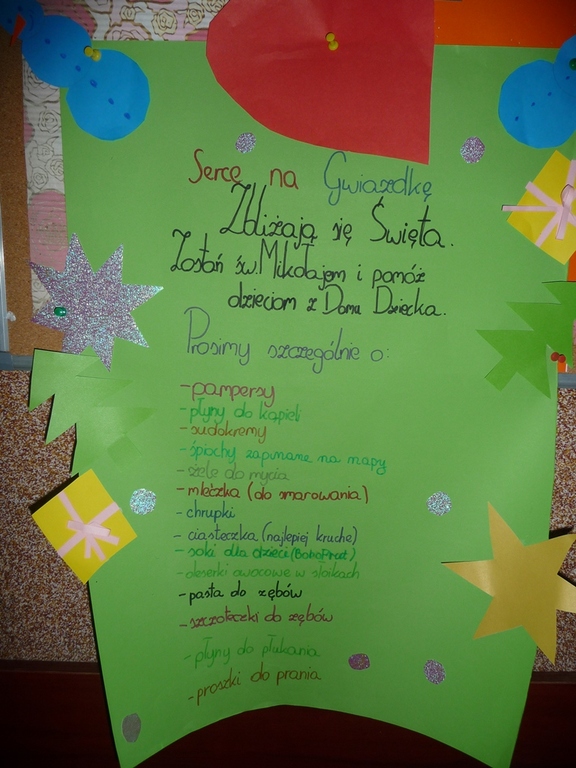 Serce na Gwiazdkę
Zbliżają się Święta.
Zostań św. Mikołajem i pomóż
dzieciom z Domu Dziecka.
Prosimy szczególnie o:
- pampersy
- płyny do kąpieli
- sudokremy
- śpiochy zapinane na napy
- żele do mycia
- mleczka (do smarowania)
- chrupki
- ciasteczka (najlepiej kruche)
- soki dla dzieci (BoboFrut)
- deserki owocowe w słoikach
- pasta do zębów
- szczoteczki do zębów
- płyny do płukania
- proszki do prania